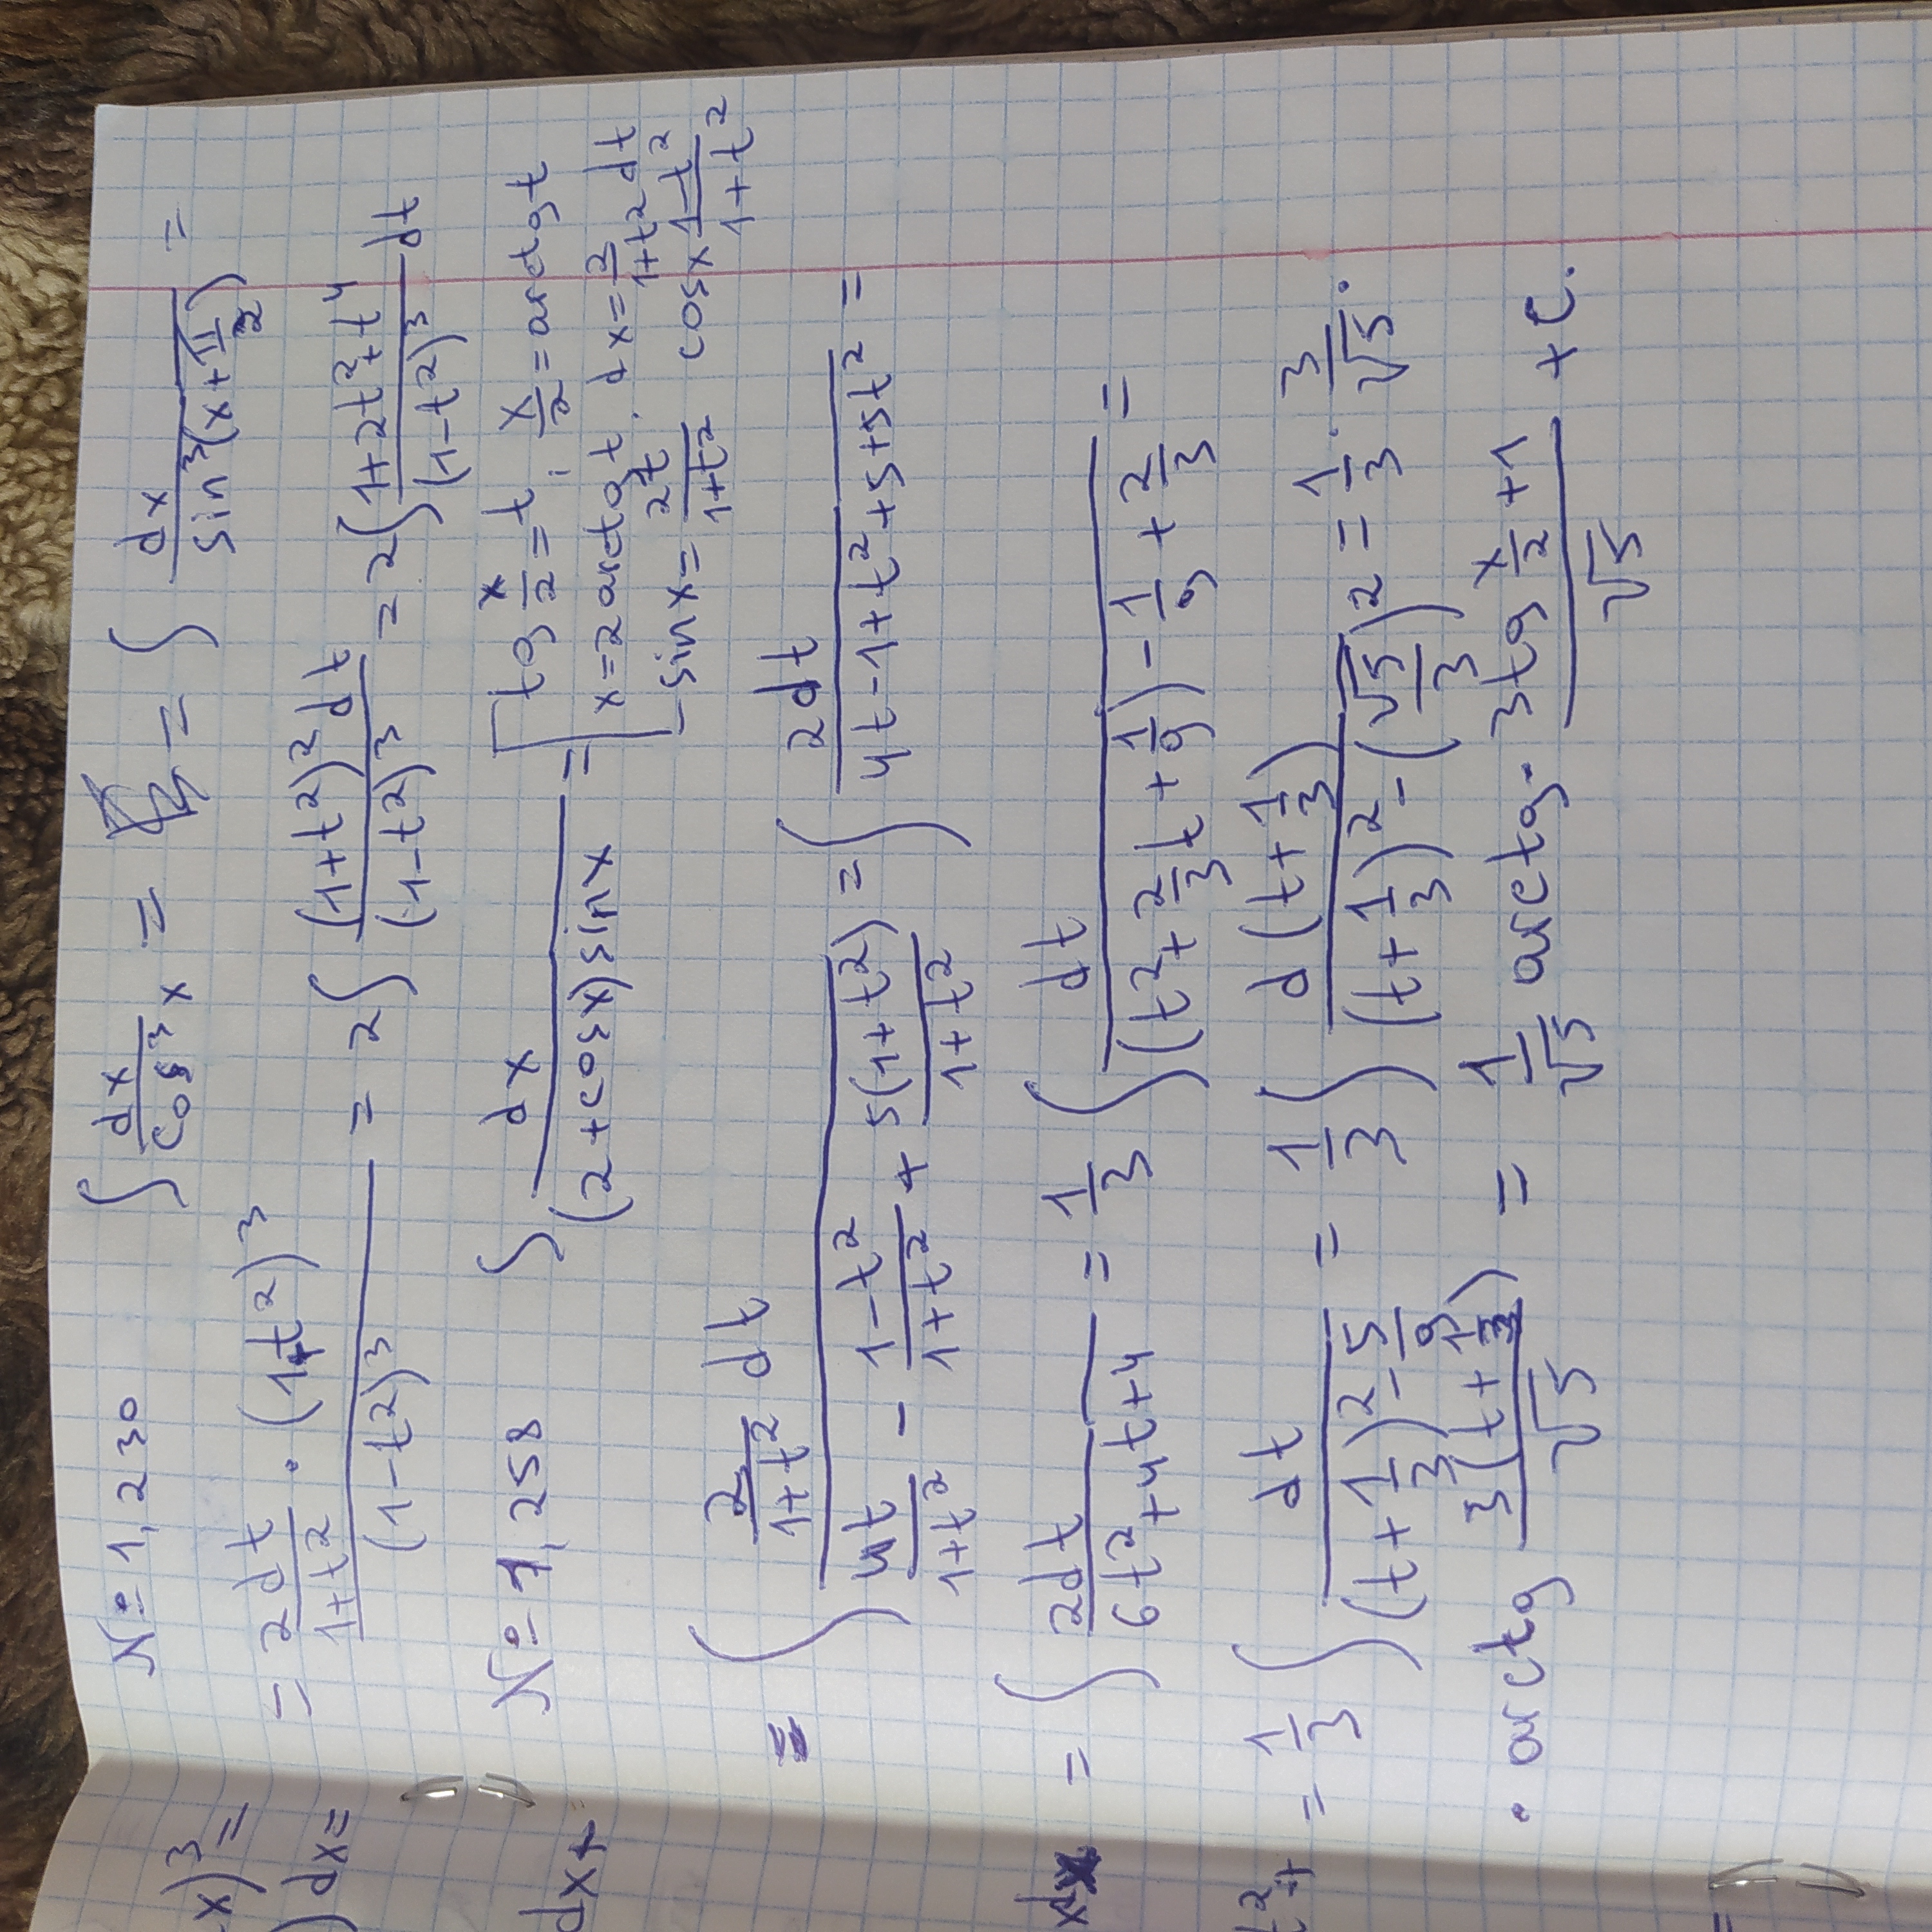 x)³=
) dx=
dx+
xdx
t²+
=
№ 1,230 ∫ dx/cos³x = = ∫ dx/sin³(x+π/2) =
= (2dt/(1+t²) · (1+t²)³)/(1-t²)³ = 2∫ (1+t²)²dt/(1-t²)³ = 2∫ (1+2t²+t⁴)/(1-t²)³ dt
№ 1,258 ∫ dx/((2+cosx)sinx) = [tg x/2 = t, x/2 = arctg t
x=2arctg t. dx= 2/(1+t²) dt
sinx= 2t/(1+t²) cosx (1-t²)/(1+t²)
= ∫ (2/(1+t²) dt)/(4t/(1+t²) - (1-t²)/(1+t²) + 5(1+t²)/(1+t²)) = ∫ 2dt/(4t-1+t²+5+5t²) =
= ∫ 2dt/(6t²+4t+4) = 1/3 ∫ dt/((t²+2/3t+1/9)-1/9+2/3) =
= 1/3 ∫ dt/((t+1/3)²-5/9) = 1/3 ∫ d(t+1/3)/((t+1/3)²-(√5/3)²) = 1/3 · 3/√5 ·
· arctg 3(t+1/3)/√5 = 1/√5 arctg· (3tg x/2 +1)/√5 + C.